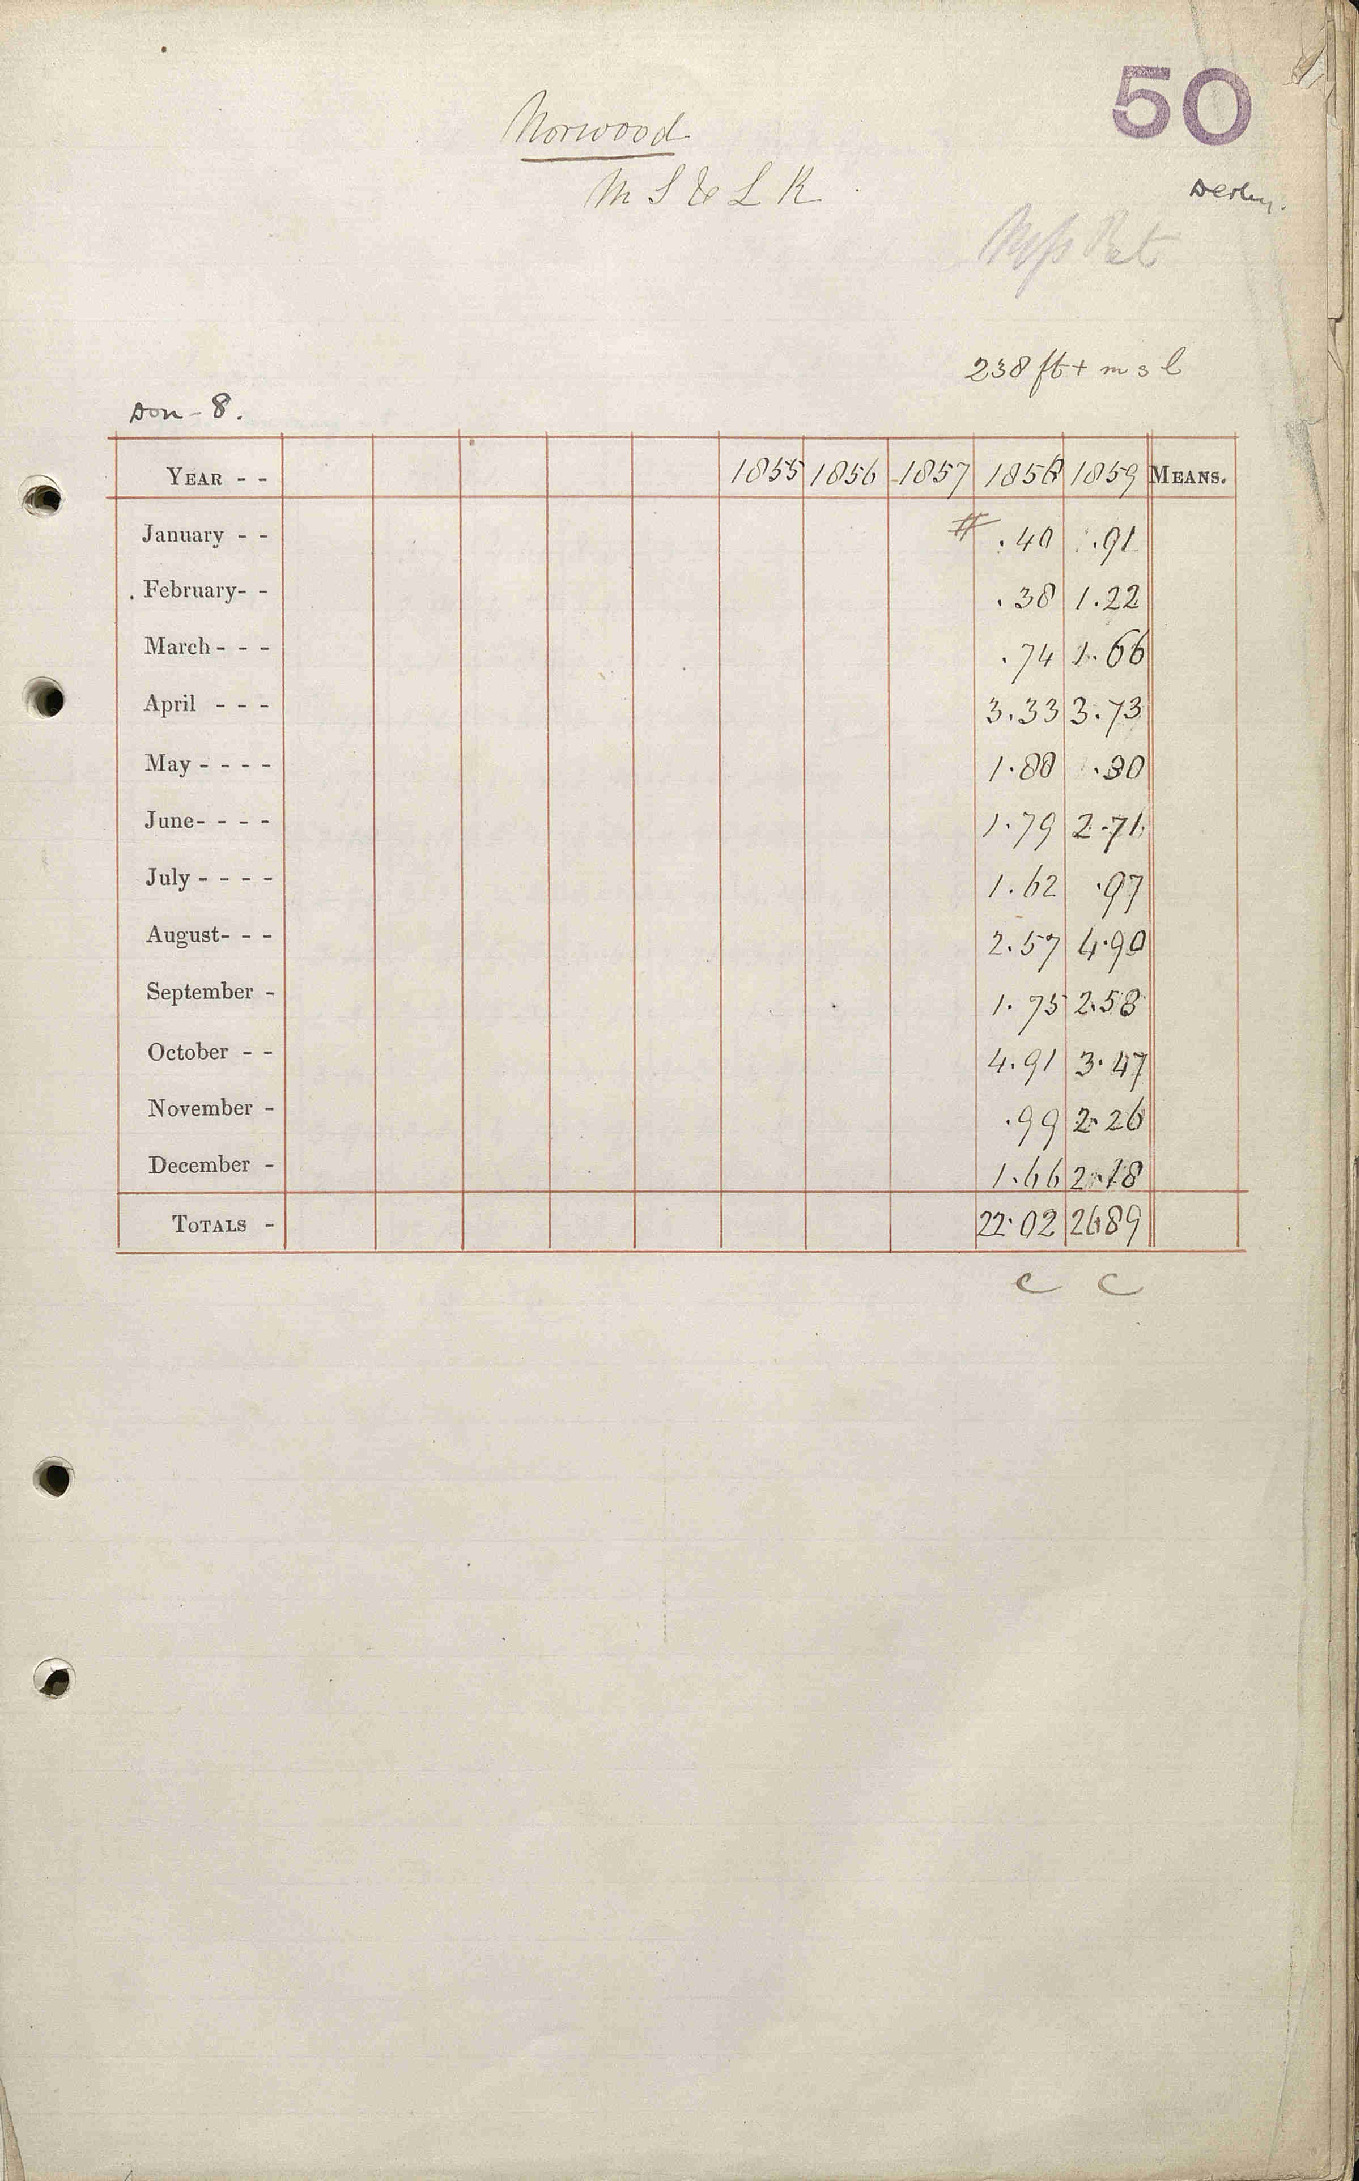 50
Norwood
M S & L R
Derby.
238 ft + m s l
Don - 8.
YEAR - - 1855 1856 1857 1858 1859 MEANS.
January - - # .40 .91
February- - .38 1.22
March - - - .74 1.66
April - - - 3.33 3.73
May - - - - 1.88 .30
June- - - - 1.79 2.71
July - - - - 1.62 .97
August- - - 2.57 4.90
September - 1.75 2.58
October - - 4.91 3.47
November - .99 2.26
December - 1.66 2.18
TOTALS - 22.02 26.89
c c